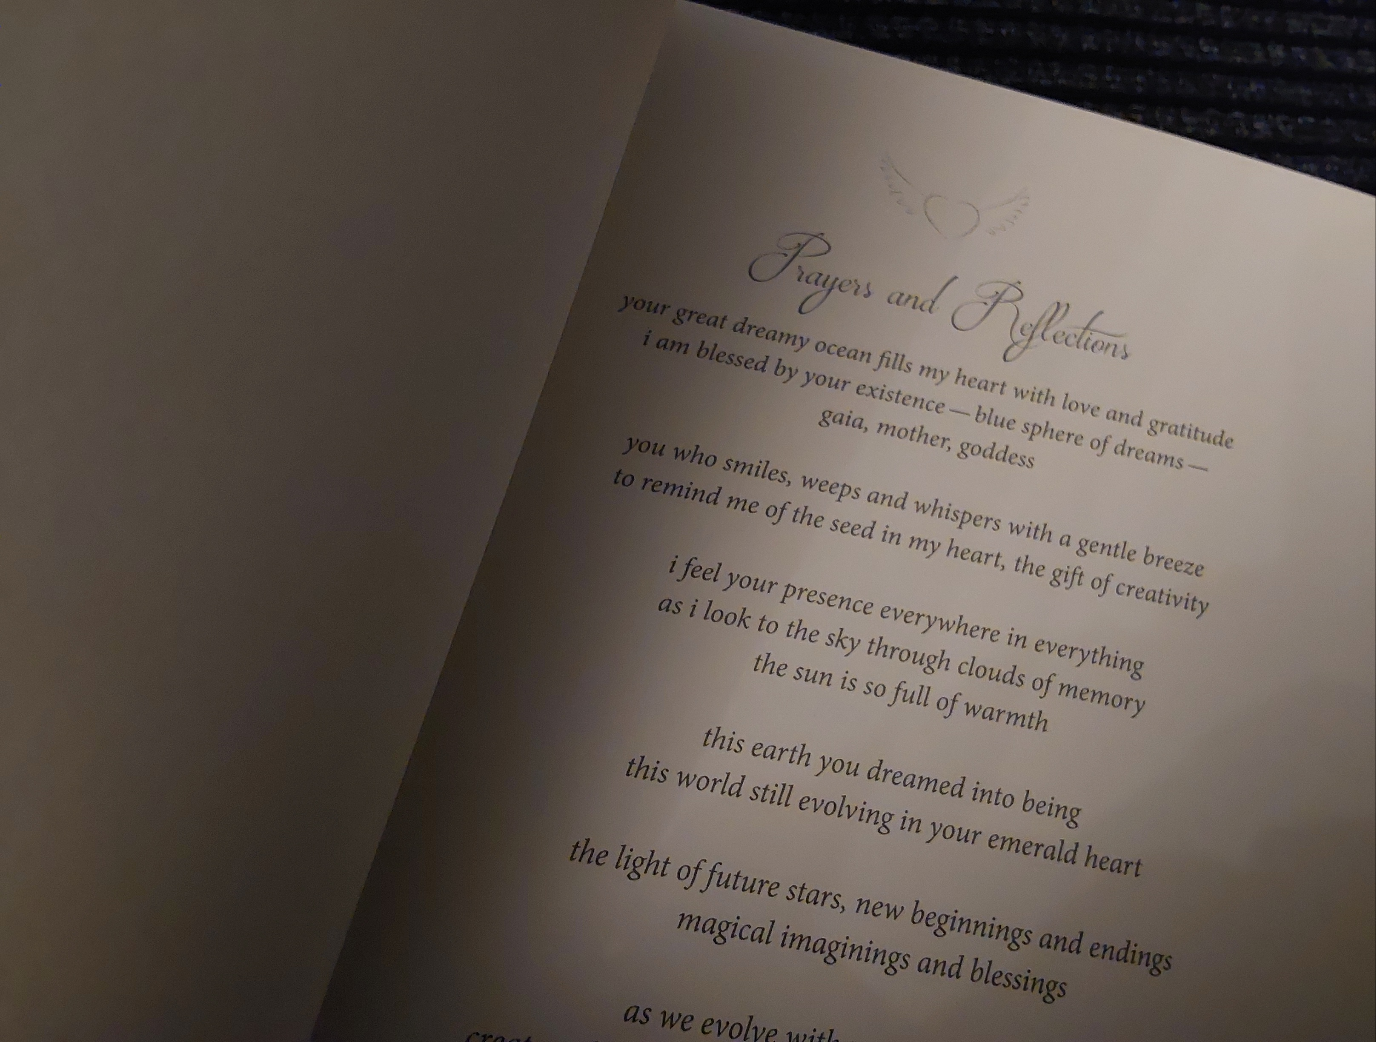 Prayers and Reflections
your great dreamy ocean fills my heart with love and gratitude
i am blessed by your existence — blue sphere of dreams —
gaia, mother, goddess
you who smiles, weeps and whispers with a gentle breeze
to remind me of the seed in my heart, the gift of creativity
i feel your presence everywhere in everything
as i look to the sky through clouds of memory
the sun is so full of warmth
this earth you dreamed into being
this world still evolving in your emerald heart
the light of future stars, new beginnings and endings
magical imaginings and blessings
as we evolve with